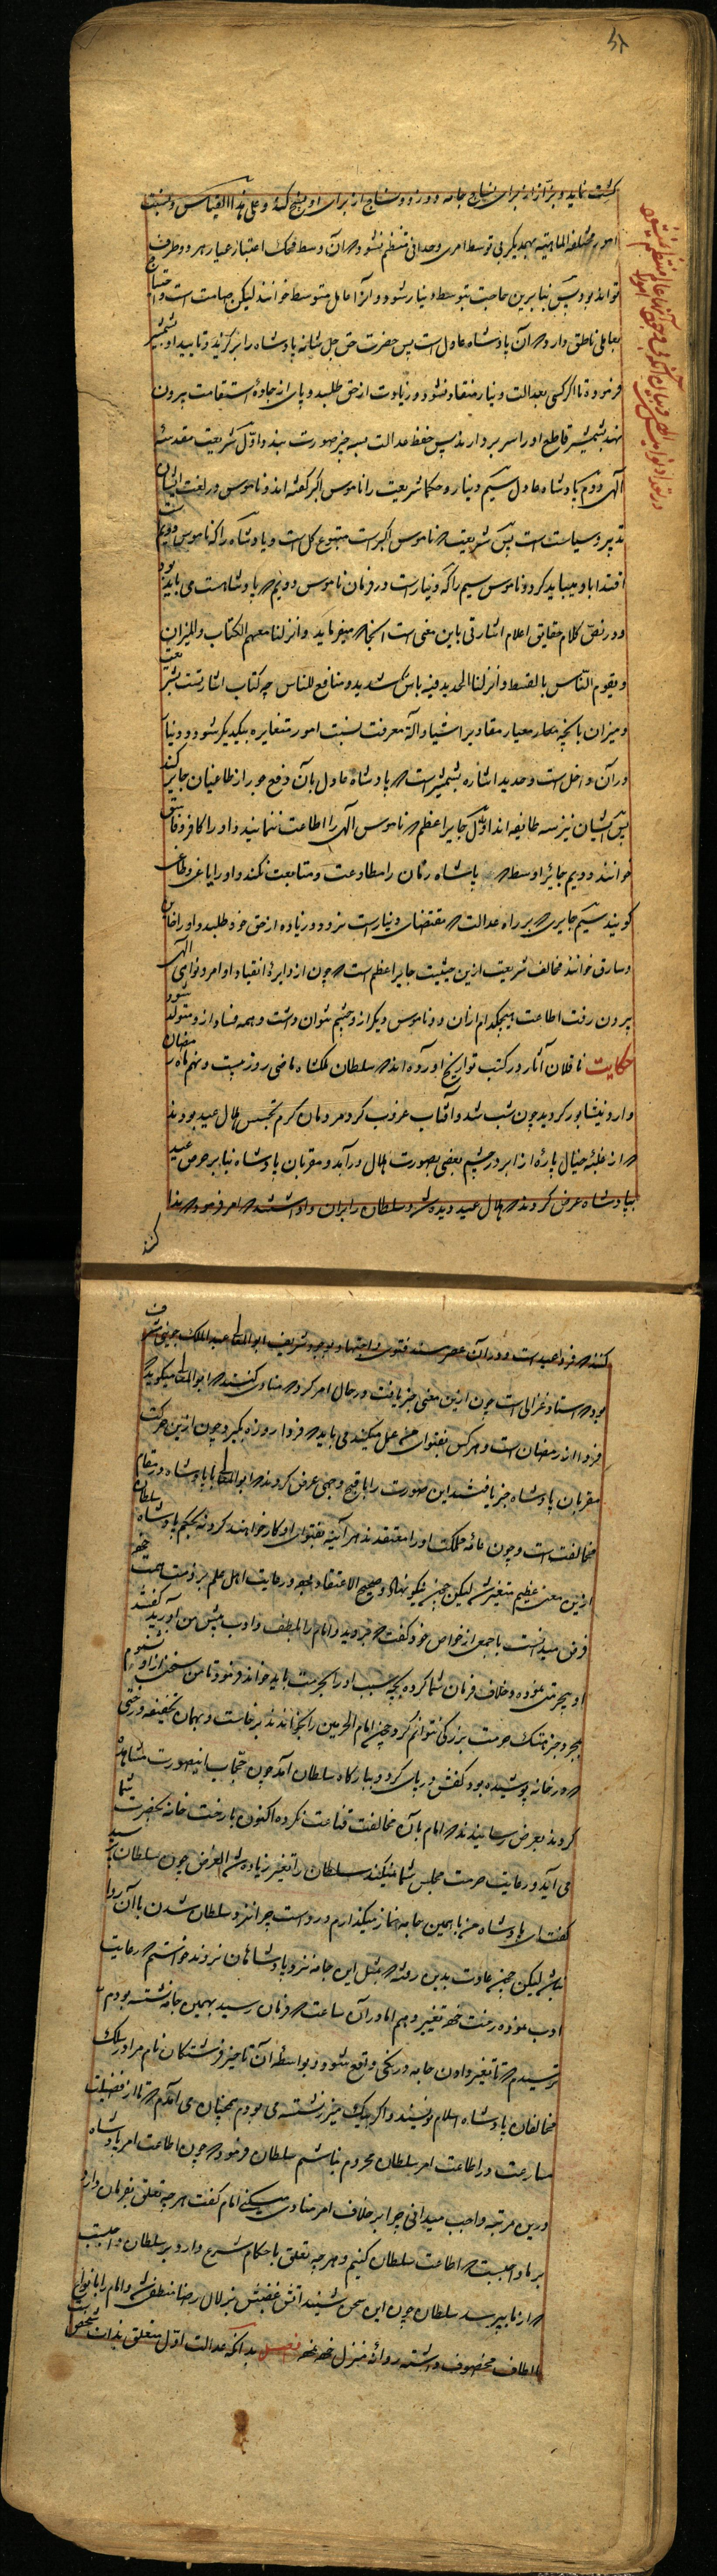 کشت نماید و بزّاز از برای نساج جامه دوزد و نساج از برای او نسج کند و علی هذا القیاس و نسبت
امور مختلفة الماهیّه بهمدیگر بی توسط امری وحدانی منتظم نشود که آن وسط محک اعتبار عیار هر دو طرف
تواند بود پس بنابرین حاجت بتوسط دینار شود و آنرا عامل متوسط خوانند لیکن صامت است و احتیاج
بعاملی ناطق دارد که آن پادشاه عادل است پس حضرت حق جل شانه پادشاه را برگزید و تایید او بشمشیر
فرموده تا اگر کسی بعدالت دینار منقاد نشود و زیادت از حق طلبد و پای از جادهٔ استقامت بیرون
نهد بشمشیر قاطع او را سر بردارند پس حفظ عدالت بسه چیز صورت بندد اوّل شریعت مقدسه
الهی دوم پادشاه عادل سیّم دینار و حکما شریعت را ناموس اکبر گفته اند و ناموس در لغت ایشان
تدبیر و سیاست است پس شریعت که ناموس اکبر است متبوع کل است و پادشاه را که ناموس دویم است
اقتدا باو میباید کرد و ناموس سیم را که دینار است در فرمان ناموس دویم که پادشاهست می باید بود
و در نصّ کلام حقایق اعلام اشارتی باین معنی است آنجا که میفرماید و انزلنا معهم الکتاب و المیزان
و یقوم النّاس بالقسط و انزلنا الحدید فیه باس شدید و منافع للناس چه کتاب اشارتست بشریعت
و میزان بآنچه معیار مقادیر اشیا و آلة معرفت نسبت امور متغایره بیکدیگر شود و دینار
در آن داخل است و حدید اشاره بشمشیر است که پادشاه عادل بآن دفع جور از طاغیان جایر کند
پس ایشان نیز سه طایفه اند اوّل جایر اعظم که ناموس الهی را اطاعت ننمایند و او را کافر و فاسق
خوانند دویم جائر اوسط که پادشاه زمان را مطاوعت و متابعت نکند و او را یاغی و طاغی
گویند سیّم جایری که بر راه عدالت که مقتضای دینار است نرود و زیاده از حق خود طلبد و او را خاین
و سارق خوانند مخالف شریعت ازین حیثیت جایر اعظم است که چون از دایرهٔ انقیاد اوامر و نواهی الهی
بیرون رفت اطاعت هیچکدام ازان دو ناموس دیگر ازو چشم نتوان داشت و همه فساد ازو متولد شود
حکایت ناقلان آثار در کتب تواریخ آورده اند که سلطان ملکشاه ماضی روز بیست و نهم ماه رمضان
وارد نیشابور گردید چون شب شد و آفتاب غروب کرد مردمان گرم تجسس هلال عید بودند
که از غلبهٔ خیال پارهٔ از ابر در چشم بعضی بصورت هلال درآمد و مقربان پادشاه بنا بر حرص عید
بپادشاه عرض کردند که هلال عید دیده شد و سلطان را بران داشتند که امر فرمود که ندا
کنند
کنند که فردا عید است و در آن عصر مسند فتوی و اجتهاد بوجود شریف ابوالمعالی عبدالملک جوینی مشرف
بود که استاد غزالی است چون ازین معنی خبر یافت در حال امر کرد که منادی کنند که ابوالمعالی میگوید که
فردا از رمضان است و هر کس بفتوای من عمل میکند می باید که فردا روزه بگیرد چون ازین حرکت
مقربان پادشاه خبر یافتند این صورت را باقبح وجهی عرض کردند که ابوالمعالی با پادشاه در مقام
مخالفت است و چون عامّه مملکت او را معتقدند هر آینه بفتوای او کار خواهند کرد نه بحکم پادشاه سلطان
ازین معنی عظیم متغیر شد لیکن چون نیکو نهاد و صحیح الاعتقاد بود و رعایت اهل علم بر ذمت همت خود
فرض میدانست با جمعی از خواص خود گفت که بروید و امام را بلطف و ادب پیش من آورید گفتند
او بیحرمتی نموده و خلاف فرمان شما کرده بچه سبب او را بحرمت باید خواند فرمود تا من سخن ازو نشنوم
بمجرد خبر هتک حرمت بزرگی نتوانم کرد چون امام الحرمین را بخواندند برخاست و بهمان تخفیفه و رختی
که در خانه پوشیده بود کفش در پای کرد و ببارگاه سلطان آمد چون حجّاب اینصورت مشاهده
کردند بعرض رسانیدند که امام بآن مخالفت قناعت نکرده اکنون با رخت خانه بحضرت شما
می آید و رعایت حرمت مجلس شما نمیکند سلطان را تغیر زیاده شد الغرض چون سلطان رسید
گفت ای پادشاه من با همین جامه نماز میگذارم و رواست چرا نزد سلطان شدن با آن روا
نباشد لیکن چون عادت بدین رفته که بمثل این جامه نزد پادشاهان نروند خواستم که رعایت
ادب نموده رخت خود تغییر دهم اما در آن ساعت که فرمان رسید بهمین جامه نشسته بودم
ترسیدم که تا تغیر دادن جامه درنگی واقع شود و بواسطهٔ آن تاخیر فرشتگان نام مرا در سلک
مخالفان پادشاه اسلام نویسند و اگر بیک میزر نشسته می بودم همچنان می آمدم که تا از فضیلت
مسارعت در اطاعت امر سلطان محروم نباشم سلطان فرمود که چون اطاعت امر پادشاه
درین مرتبه واجب میدانی چرا بر خلاف امر منادی میکنی امام گفت هر چه تعلق بفرمان دارد
بر ما واجبست که اطاعت سلطان کنیم و هر چه تعلق باحکام شرع دارد بر سلطان واجبست
که از ما بپرسد سلطان چون این سخن شنید آتش غضبش بزلال رضا منطفی شد و امام را بانواع
الطاف مخصوص داشته روانهٔ منزل خود نمود فصل بدانکه عدالت اوّل متعلق بذات شخص است